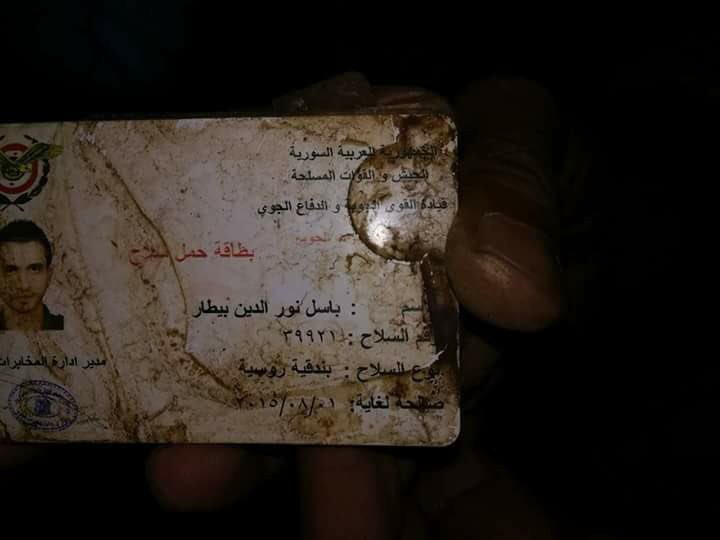 الجمهورية العربية السورية
الجيش و القوات المسلحة
قيادة القوى الجوية و الدفاع الجوي
بطاقة حمل سلاح
الاسم : باسل نور الدين بيطار
رقم السلاح : ٣٩٩٢١
نوع السلاح : بندقية روسية
صالحة لغاية: ٢٠١٥/٠٨/٠١
مدير ادارة المخابرات